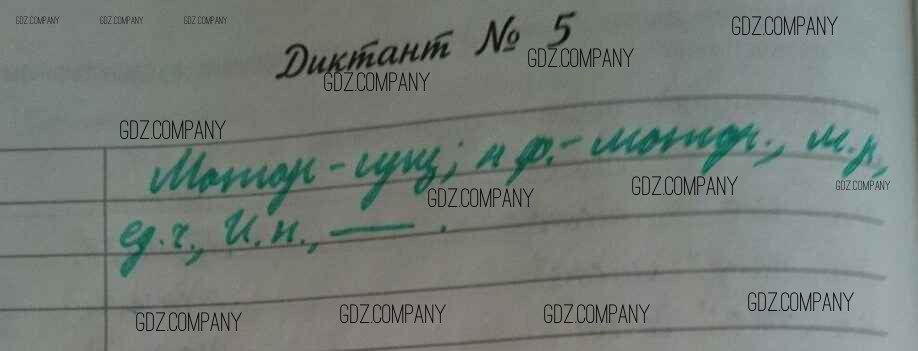 GDZ.COMPANY GDZ.COMPANY GDZ.COMPANY
GDZ.COMPANY
Диктант № 5
GDZ.COMPANY
GDZ.COMPANY
GDZ.COMPANY
Мотор - сущ; н ф. - мотор., м.р,
GDZ.COMPANY
GDZ.COMPANY
GDZ.COMPANY
ед.ч., И.п., —.
GDZ.COMPANY
GDZ.COMPANY
GDZ.COMPANY
GDZ.COMPANY